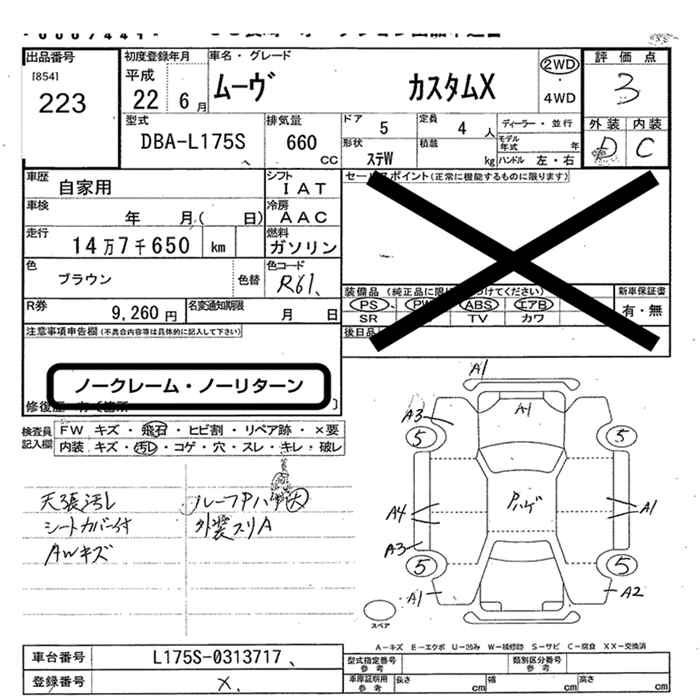 出品番号
[854]
223
初度登録年月
平成
22 6月
車名・グレード
ムーヴ カスタムX
2WD
4WD
評価点
3
外装 内装
D C
型式
DBA-L175S
排気量
660
CC
ドア
5
定員
4人
ディーラー・並行
モデル年式 年
形状
ステW
積載
kg
ハンドル 左・右
車歴
自家用
シフト
IAT
車検
年 月( 日)
冷房
AAC
走行
14万7千650 km
燃料
ガソリン
色
ブラウン
色替
色コード
R61
R券
9,260円
名変通知期限
月 日
セールスポイント(正常に機能するものに限ります)
装備品(純正品に限 つけてください)
PS PW ABS エアB
SR TV カワ
新車保証書
有・無
後日品
注意事項申告欄(不具合内容等は具体的に記入して下さい)
ノークレーム・ノーリターン
検査員記入欄
FW キズ・飛石・ヒビ割・リペア跡・×要
内装 キズ・汚レ・コゲ・穴・スレ・キレ・破レ
天張汚レ
シートカバー付
AWキズ
ルーフPハゲ大
外装スリA
A1
A1
A3
5
5
A4
Pハゲ
A1
A3
5
5
A1
A2
スペア
A-キズ E-エクボ U-凹み W-補修跡 S-サビ C-腐食 XX-交換済
車台番号
L175S-0313717
登録番号
X
型式指定番号
参考
類別区分番号
参考
車庫証明用
参考
長さ cm
幅 cm
高さ cm